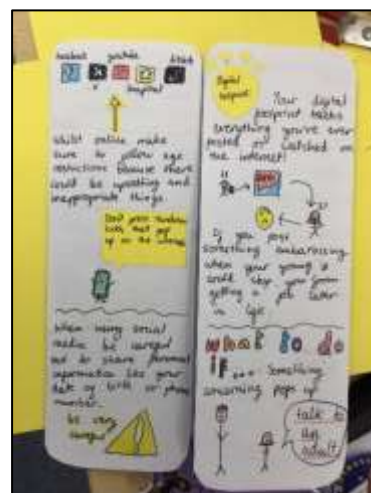 facebook youtube tiktok
X snapchat
Whilst online make
sure to follow age
restrictions because there
could be upsetting and
inappropriate things.
Don't press random
links that pop
up on the internet
When using social
media be careful
not to share personal
information like your
date of birth or phone
number.
be very
careful
Digital
footprint
Your digital
footprint tracks
everything you've ever
posted or watched on
the internet!
If you post
something embarrassing
when your young it
could stop you
getting a job later
in life
what to do
if... Something
concerning pops up
talk to
an
adult